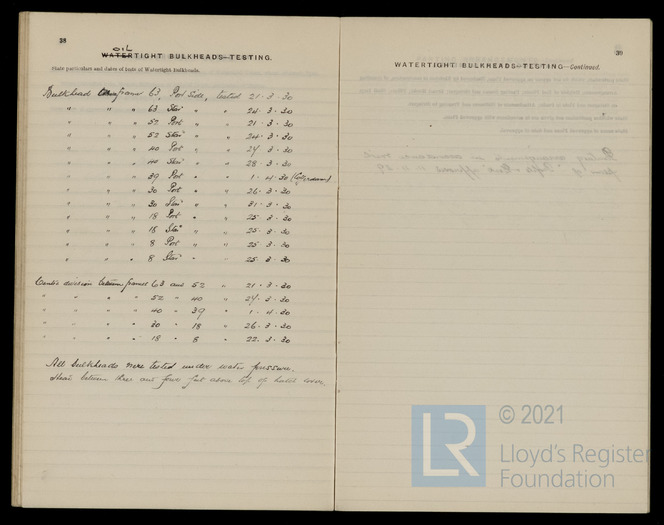 38
OIL
WATERTIGHT BULKHEADS—TESTING.
State particulars and dates of tests of Watertight Bulkheads.
Bulkhead frame 63, Port Side, tested 21 · 3 · 30
" " " 63 Star " " 24 · 3 · 30
" " " 52 Port " " 21 · 3 · 30
" " " 52 Star " " 24 · 3 · 30
" " " 40 Port " " 24 · 3 · 30
" " " 40 Star " " 28 · 3 · 30
" " " 39 Port " " 1 · 4 · 30
" " " 30 Port " " 26 · 3 · 30
" " " 30 Star " " 31 · 3 · 30
" " " 18 Port " " 25 · 3 · 30
" " " 18 Star " " 25 · 3 · 30
" " " 8 Port " " 25 · 3 · 30
" " " 8 Star " " 25 · 3 · 30
Centre division between frames 63 and 52 " 21 · 3 · 30
" " " " 52 " 40 " 24 · 3 · 30
" " " " 40 " 39 " 1 · 4 · 30
" " " " 30 " 18 " 26 · 3 · 30
" " " " 18 " 8 " 22 · 3 · 30
All bulkheads were tested under water pressure.
Head between three and four feet above top of hatch cover.
39
WATERTIGHT BULKHEADS—TESTING—Continued.
© 2021
LR
Lloyd's Register
Foundation